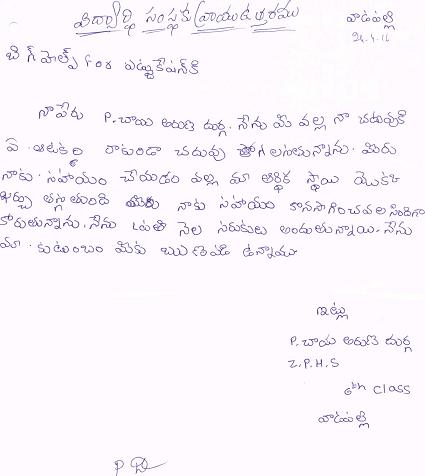 విద్యార్థి సంస్థకు వ్రాయు ఉత్తరము
వాడపల్లి
24.4.16
బిగ్ హెల్ప్ for ఎడ్యుకేషన్‌కి
నా పేరు P. చాయ అరుణ దుర్గ. నేను మీ వల్ల నా చదువుకి
ఏ ఆటకం రాకుండా చదువు కో గలుగుతున్నాను. మీరు
నాకు సహాయం చేయడం వల్ల మా ఆర్థిక స్థాయి యొక్క
ఖర్చు తగ్గుతుంది మీరు నాకు సహాయం కొనసాగించవలసిందిగా
కోరుతున్నాను. నేను ప్రతి నెల సరుకులు అందుతున్నాయి. నేను
మా కుటుంబం మీకు ఋణపడి ఉన్నాము
ఇట్లు
P. చాయ అరుణ దుర్గ
Z.P.H.S
6th class
వాడపల్లి